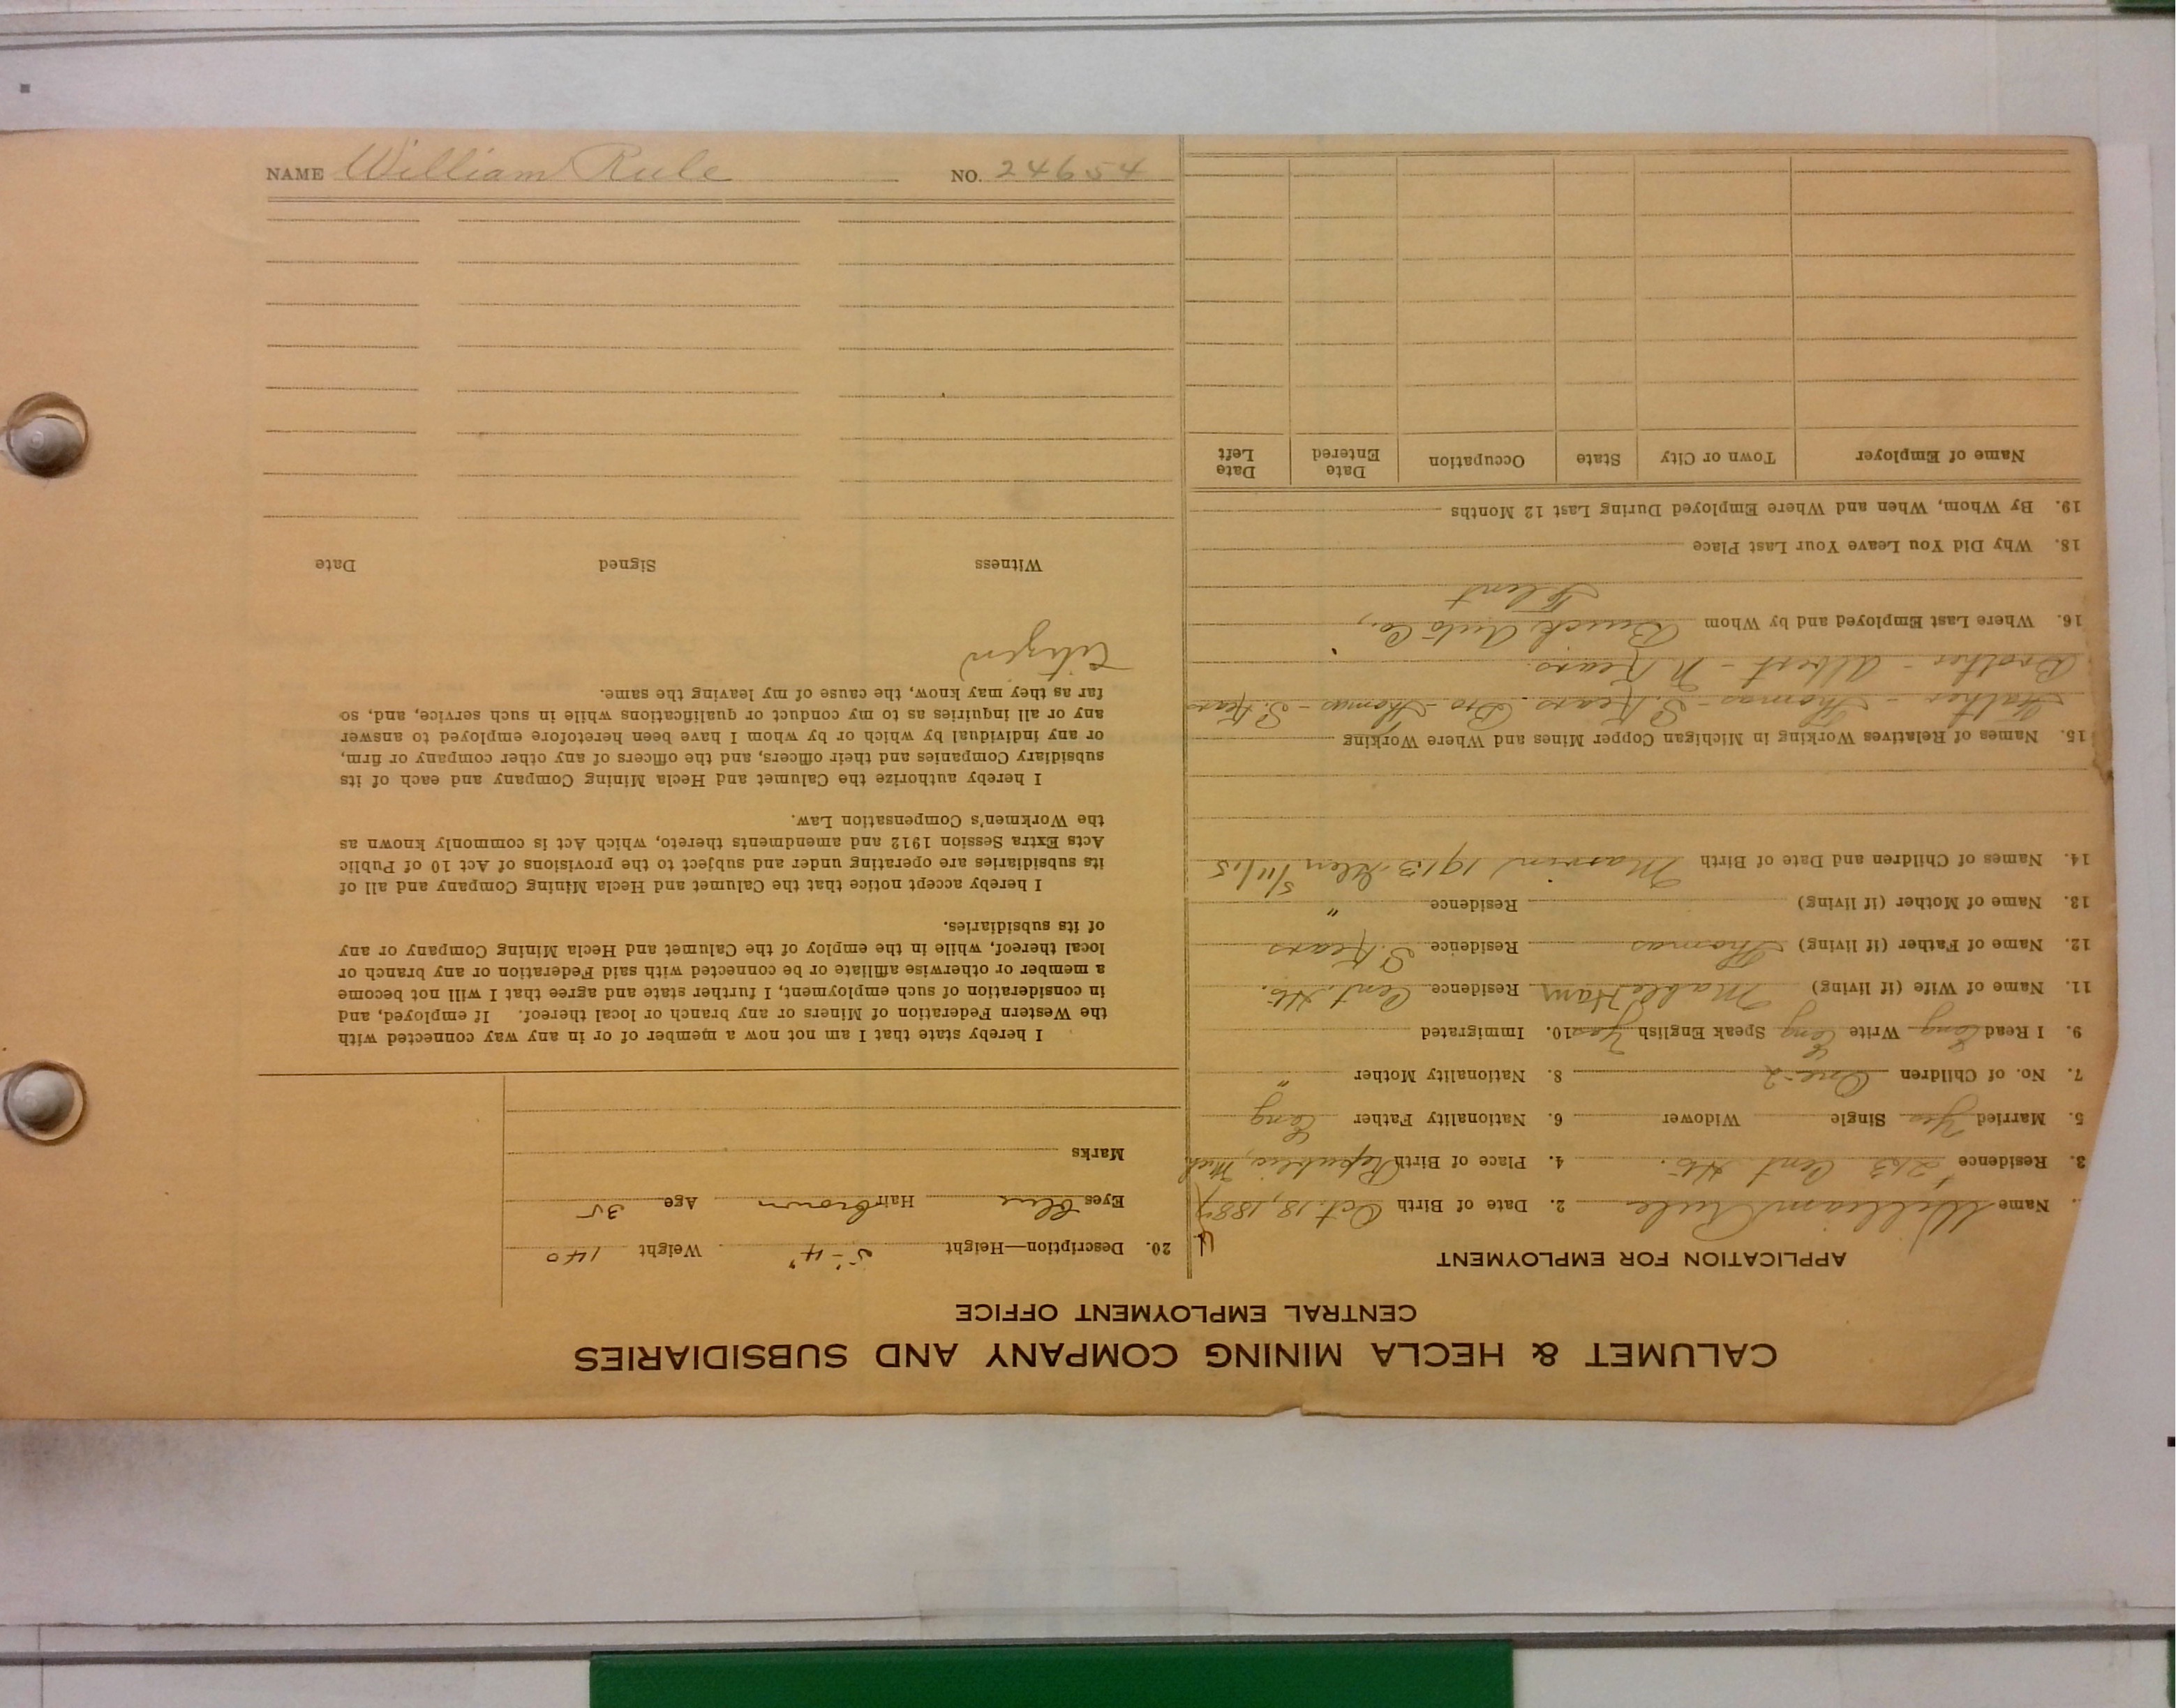 CALUMET & HECLA MINING COMPANY AND SUBSIDIARIES
CENTRAL EMPLOYMENT OFFICE
APPLICATION FOR EMPLOYMENT
Name William Rule 2. Date of Birth Oct. 18, 1887
3. Residence 213 Cent. Hts. 4. Place of Birth Republic, Mich
5. Married Yes Single Widower 6. Nationality Father Eng
7. No. of Children One 2 8. Nationality Mother "
9. I Read Eng Write Eng Speak English Yes 10. Immigrated
11. Name of Wife (if living) Mable Ham Residence Cent. Hts.
12. Name of Father (if living) Thomas Residence S. Kears
13. Name of Mother (if living) Residence "
14. Names of Children and Date of Birth Marvin 1913 5/11/15
15. Names of Relatives Working in Michigan Copper Mines and Where Working
Father - Thomas - S. Kears. Bro - Thomas - S. Kears
Brother - Albert - N. Kears.
16. Where Last Employed and by Whom Buick Auto Co.,
Flint
18. Why Did You Leave Your Last Place
19. By Whom, When and Where Employed During Last 12 Months
Name of Employer Town or City State Occupation Date Entered Date Left
20. Description—Height 5'-4" Weight 140
Eyes Blue Hair brown Age 35
Marks
I hereby state that I am not now a member of or in any way connected with
the Western Federation of Miners or any branch or local thereof. If employed, and
in consideration of such employment, I further state and agree that I will not become
a member or otherwise affiliate or be connected with said Federation or any branch or
local thereof, while in the employ of the Calumet and Hecla Mining Company or any
of its subsidiaries.
I hereby accept notice that the Calumet and Hecla Mining Company and all of
its subsidiaries are operating under and subject to the provisions of Act 10 of Public
Acts Extra Session 1912 and amendments thereto, which Act is commonly known as
the Workmen's Compensation Law.
I hereby authorize the Calumet and Hecla Mining Company and each of its
subsidiary Companies and their officers, and the officers of any other company or firm,
or any individual by which or by whom I have been heretofore employed to answer
any or all inquiries as to my conduct or qualifications while in such service, and, so
far as they may know, the cause of my leaving the same.
Citizen
Witness Signed Date
NAME William Rule NO. 24654